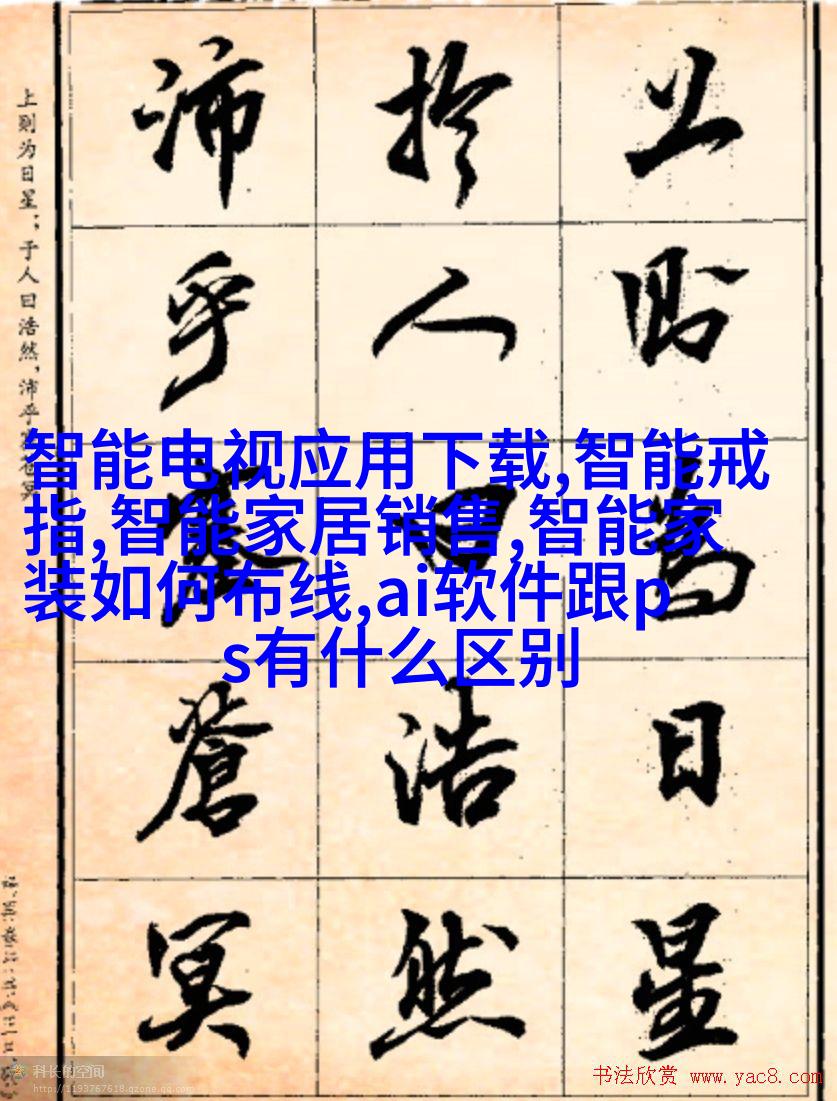 上則為日星
扵人曰浩然
沛乎塞蒼冥
上则为日星；于人曰浩然，沛乎塞苍冥
智能电视应用下载,智能戒
指,智能家居销售,智能家
装如何布线,ai软件跟p
s有什么区别
科长的空间
http://1193767618.qzone.qq.com
书法欣赏 www.yac8.com